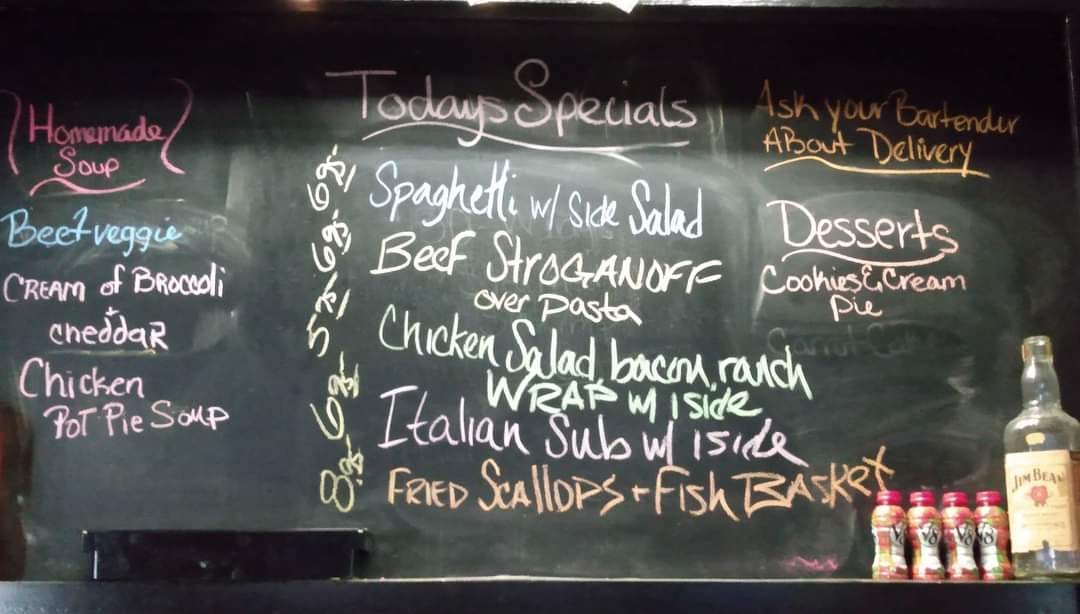 Homemade
Soup
Beef veggie
CREAM of Broccoli
+
cheddar
Chicken
Pot Pie Soup
Todays Specials
6 95 Spaghetti w/ side Salad
6 95 Beef Stroganoff
over pasta
5 Chicken Salad, bacon, ranch
WRAP w/ 1 side
6 95 Italian Sub w/ 1 side
8 95 Fried Scallops + Fish Basket
Ask your Bartender
About Delivery
Desserts
Cookies & Cream
Pie
Carrot Cake
JIM BEAM
V8
V8
V8
V8